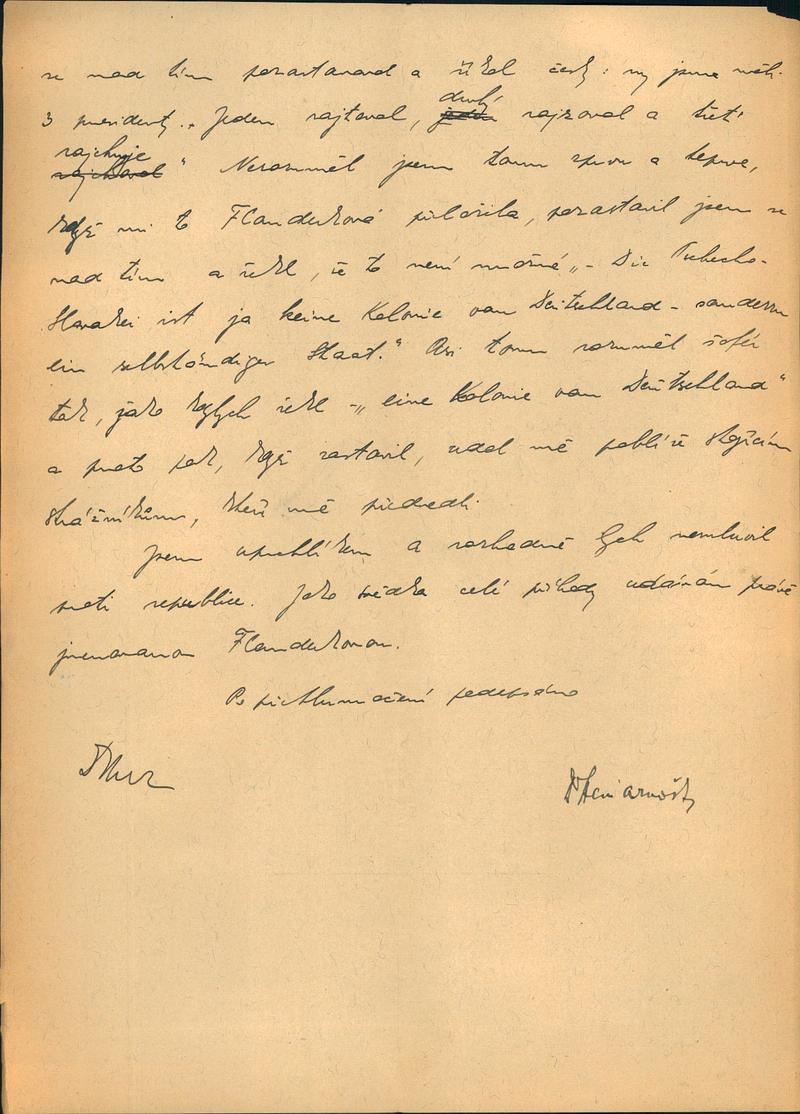 se nad tím pozastavoval a řekl česky: my jsme měli
3 presidenty. „Jeden rajtoval, druhý rajzoval a třetí
rajchuje" Nerozuměl jsem tomu zprvu a teprve,
když mi to Flanderková přeložila, pozastavil jsem se
nad tím a řekl, že to není možné „- Die Tschecho-
slovakei ist ja keine Kolonie von Deutschland - sondern
ein selbständiger Staat." Asi tomu rozuměl šofér
tak, jako bych řekl - „eine Kolonie von Deutschland"
a proto pak, když zastavil, udal mě poblíže stojícím
strážníkům, kteří mě předvedli.
Jsem uprchlíkem a rozhodně bych nemluvil
proti republice. Jako svědka celé příhody udávám právě
jmenovanou Flanderkovou.
Po přetlumočení podepsáno
Arnošt